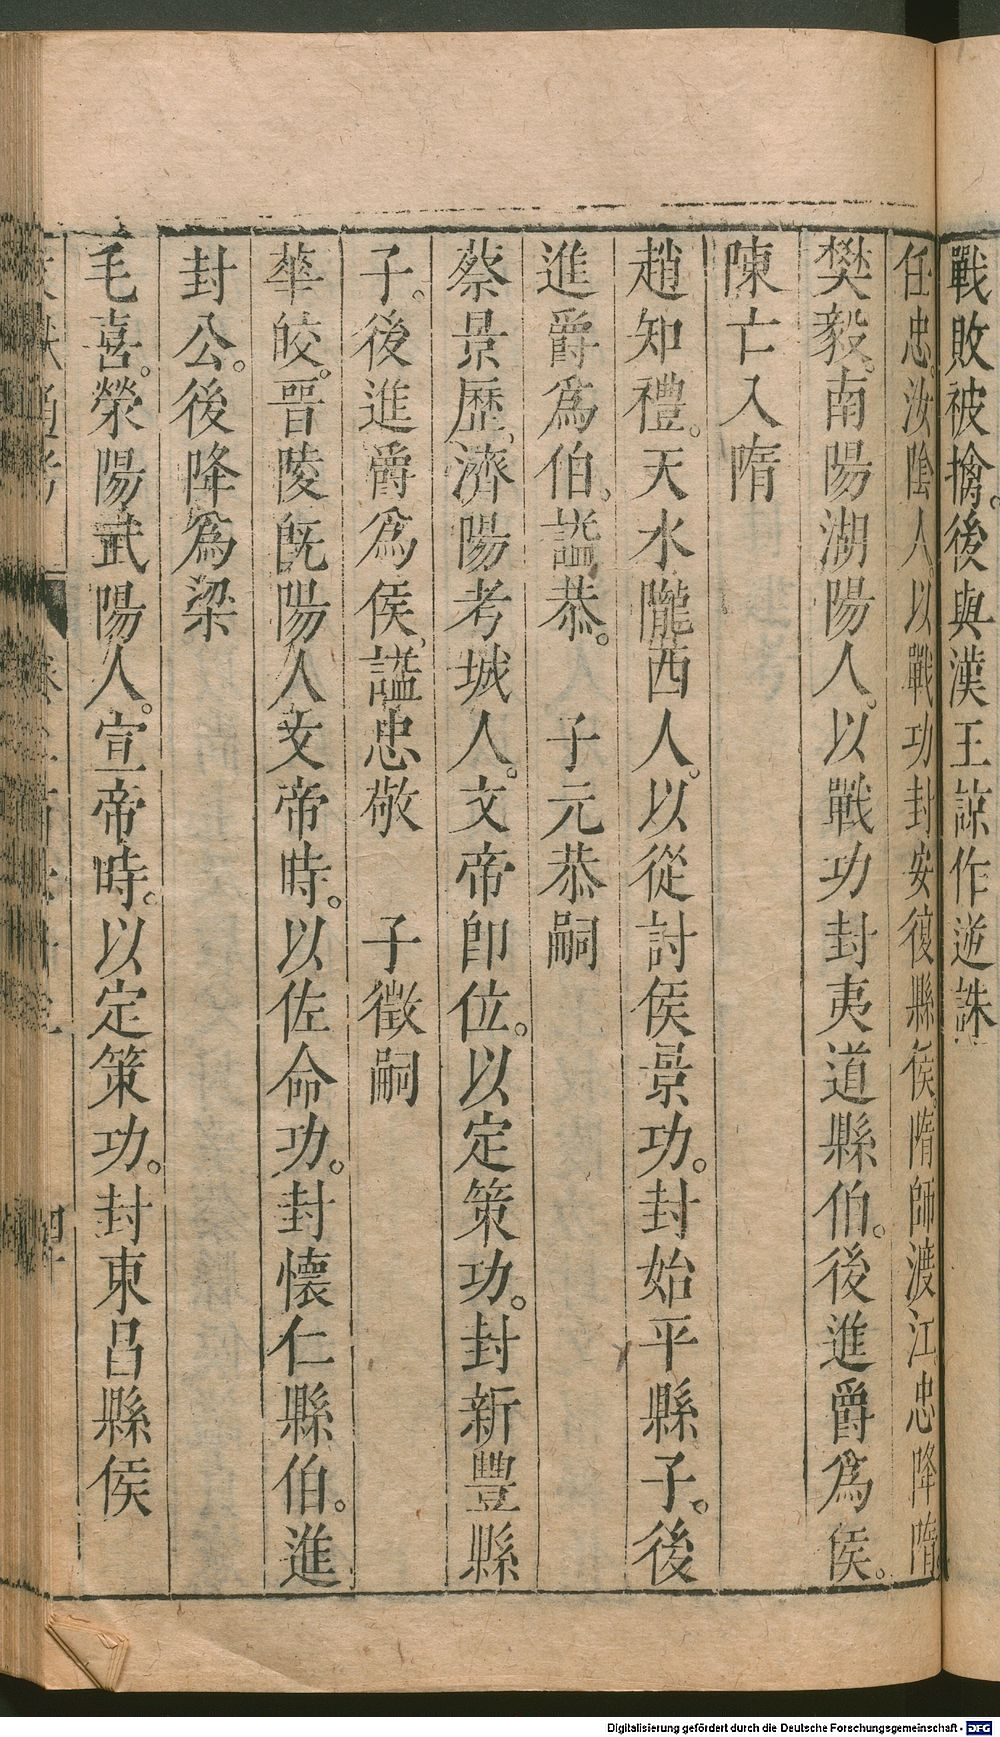 戰敗被擒。後與漢王諒作逆誅
任忠。汝陰人以戰功封安復縣侯。隋師渡江忠降隋
樊毅。南陽湖陽人。以戰功封夷道縣伯。後進爵爲侯。
陳亡入隋
趙知禮。天水隴西人。以從討侯景功。封始平縣子。後
進爵爲伯。謚恭。 子元恭嗣
蔡景歷。濟陽考城人。文帝卽位。以定策功。封新豐縣
子。後進爵爲侯。謚忠敬 子徵嗣
華皎。晋陵旣陽人文帝時。以佐命功。封懷仁縣伯。進
封公。後降爲梁
毛喜。滎陽武陽人。宣帝時。以定策功。封東昌縣侯
Digitalisierung gefördert durch die Deutsche Forschungsgemeinschaft - DFG